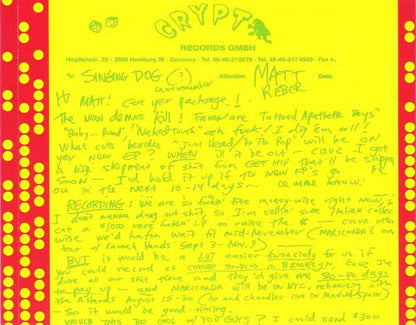 CRYPT
RECORDS GMBH
Hopfenstr. 32 - 2000 Hamburg 36 - Germany - Tel. 49-40- - Tel. 49-40-3174503 - Fax
To: SINGING DOG (?) Attention: MATT REBER Date:
Hi MATT! Got yer package!
The new demos kill! Faves are "Tattooed Apathetic Boys"
"Baby... Road," "Naked Truth" aah fuck! I dig 'em all!
What cuts besides "Jim Head Do The Pop" will be on
yer new EP? WHEN will it be out — cause I got
a big shipment of shit from GET HIP that'll be shipping
SOON — I'd hold it up if the new EP's go be
out in the next 10-14 days — Lemme know!
RECORDING: We are so fuckin' tite money-wise right now, &
I don't wanna drag out shit, so I'm sellin' some Italian collec-
cat a $1,000 LP to raise the $ — cause oth-
wise we'd hafta wait til mid-November (MARICONDAS on
tour w/ Raunch Hands Sept 3 - Nov. 9)
BUT it would be a LOT easier financially for us if
you could record at COYOTE STUDIOS in BROOKLYN, cause I've
done all our shit there and they'd give us 30-40 days
to pay it up — and MARICONDA will be in NYC, rehearsing with
the R. Hands August 15-30 (he and Chandler live in Madrid, Spain)
— So it would be good timing.
WOULD THIS BE COOL w/ YOU GUYS? I could send $300